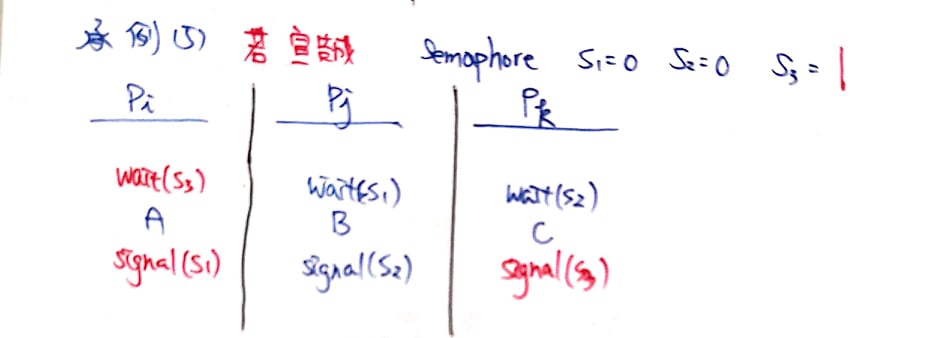 承例(5) 若宣告成 Semaphore S1=0 S2=0 S3=1
Pi Pj Pk
wait(S3) wait(S1) wait(S2)
A B C
signal(S1) signal(S2) signal(S3)